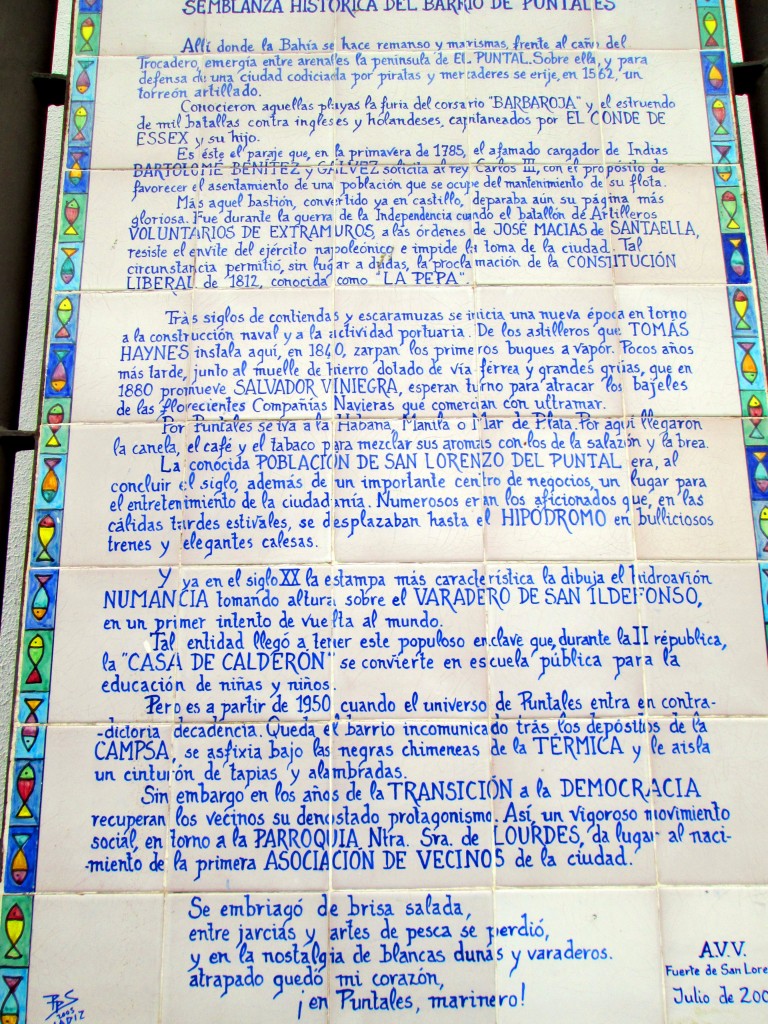 SEMBLANZA HISTÓRICA DEL BARRIO DE PUNTALES
Allí donde la Bahía se hace remanso y marismas, frente al caño del
Trocadero, emergía entre arenales la península de EL PUNTAL. Sobre ella, y para
defensa de una ciudad codiciada por piratas y mercaderes se erije, en 1562, un
torreón artillado.
Conocieron aquellas playas la furia del corsario "BARBAROJA" y el estruendo
de mil batallas contra ingleses y holandeses, capitaneados por EL CONDE DE
ESSEX y su hijo.
Es éste el paraje que, en la primavera de 1785, el afamado cargador de Indias
BARTOLOMÉ BENÍTEZ y GÁLVEZ solicita al rey Carlos III, con el propósito de
favorecer el asentamiento de una población que se ocupe del mantenimiento de su flota.
Más aquel bastión, convertido ya en castillo, deparaba aún su página más
gloriosa. Fue durante la guerra de la Independencia cuando el batallón de Artilleros
VOLUNTARIOS DE EXTRAMUROS, a las órdenes de JOSÉ MACIAS de SANTAELLA,
resiste el envite del ejército napoleónico e impide la toma de la ciudad. Tal
circunstancia permitió, sin lugar a dudas, la proclamación de la CONSTITUCIÓN
LIBERAL de 1812, conocida como "LA PEPA"
Trás siglos de contiendas y escaramuzas se inicia una nueva época en torno
a la construcción naval y a la actividad portuaria. De los astilleros que TOMÁS
HAYNES instala aquí, en 1840, zarpan los primeros buques a vapor. Pocos años
más tarde, junto al muelle de hierro dotado de vía férrea y grandes grúas, que en
1880 promueve SALVADOR VINIEGRA, esperan turno para atracar los bajeles
de las florecientes Compañías Navieras que comercian con ultramar.
Por Puntales se iva a la Habana, Manila o Mar de Plata. Por aquí llegaron
la canela, el café y el tabaco para mezclar sus aromas con los de la salazón y la brea.
La conocida POBLACIÓN DE SAN LORENZO DEL PUNTAL era, al
concluir el siglo, además de un importante centro de negocios, un lugar para
el entretenimiento de la ciudadanía. Numerosos eran los aficionados que, en las
cálidas tardes estivales, se desplazaban hasta el HIPÓDROMO en bulliciosos
trenes y elegantes calesas.
Y ya en el siglo XX la estampa más característica la dibuja el hidroavión
NUMANCIA tomando altura sobre el VARADERO DE SAN ILDEFONSO,
en un primer intento de vuelta al mundo.
Tal entidad llegó a tener este populoso enclave que, durante la II républica,
la "CASA DE CALDERÓN" se convierte en escuela pública para la
educación de niñas y niños.
Pero es a partir de 1950 cuando el universo de Puntales entra en contra-
-dictoria decadencia. Queda el barrio incomunicado trás los depósitos de la
CAMPSA, se asfixia bajo las negras chimeneas de la TÉRMICA y le aisla
un cinturón de tapias y alambradas.
Sin embargo en los años de la TRANSICIÓN a la DEMOCRACIA
recuperan los vecinos su denostado protagonismo. Así, un vigoroso movimiento
social, en torno a la PARROQUIA Ntra. Sra. de LOURDES, da lugar al naci-
-miento de la primera ASOCIACIÓN DE VECINOS de la ciudad.
Se embriagó de brisa salada,
entre jarcias y artes de pesca se perdió,
y en la nostalgia de blancas dunas y varaderos.
atrapado quedó mi corazón,
¡en Puntales, marinero!
A.V.V.
Fuerte de San Lore
Julio de 200
2003
CÁDIZ